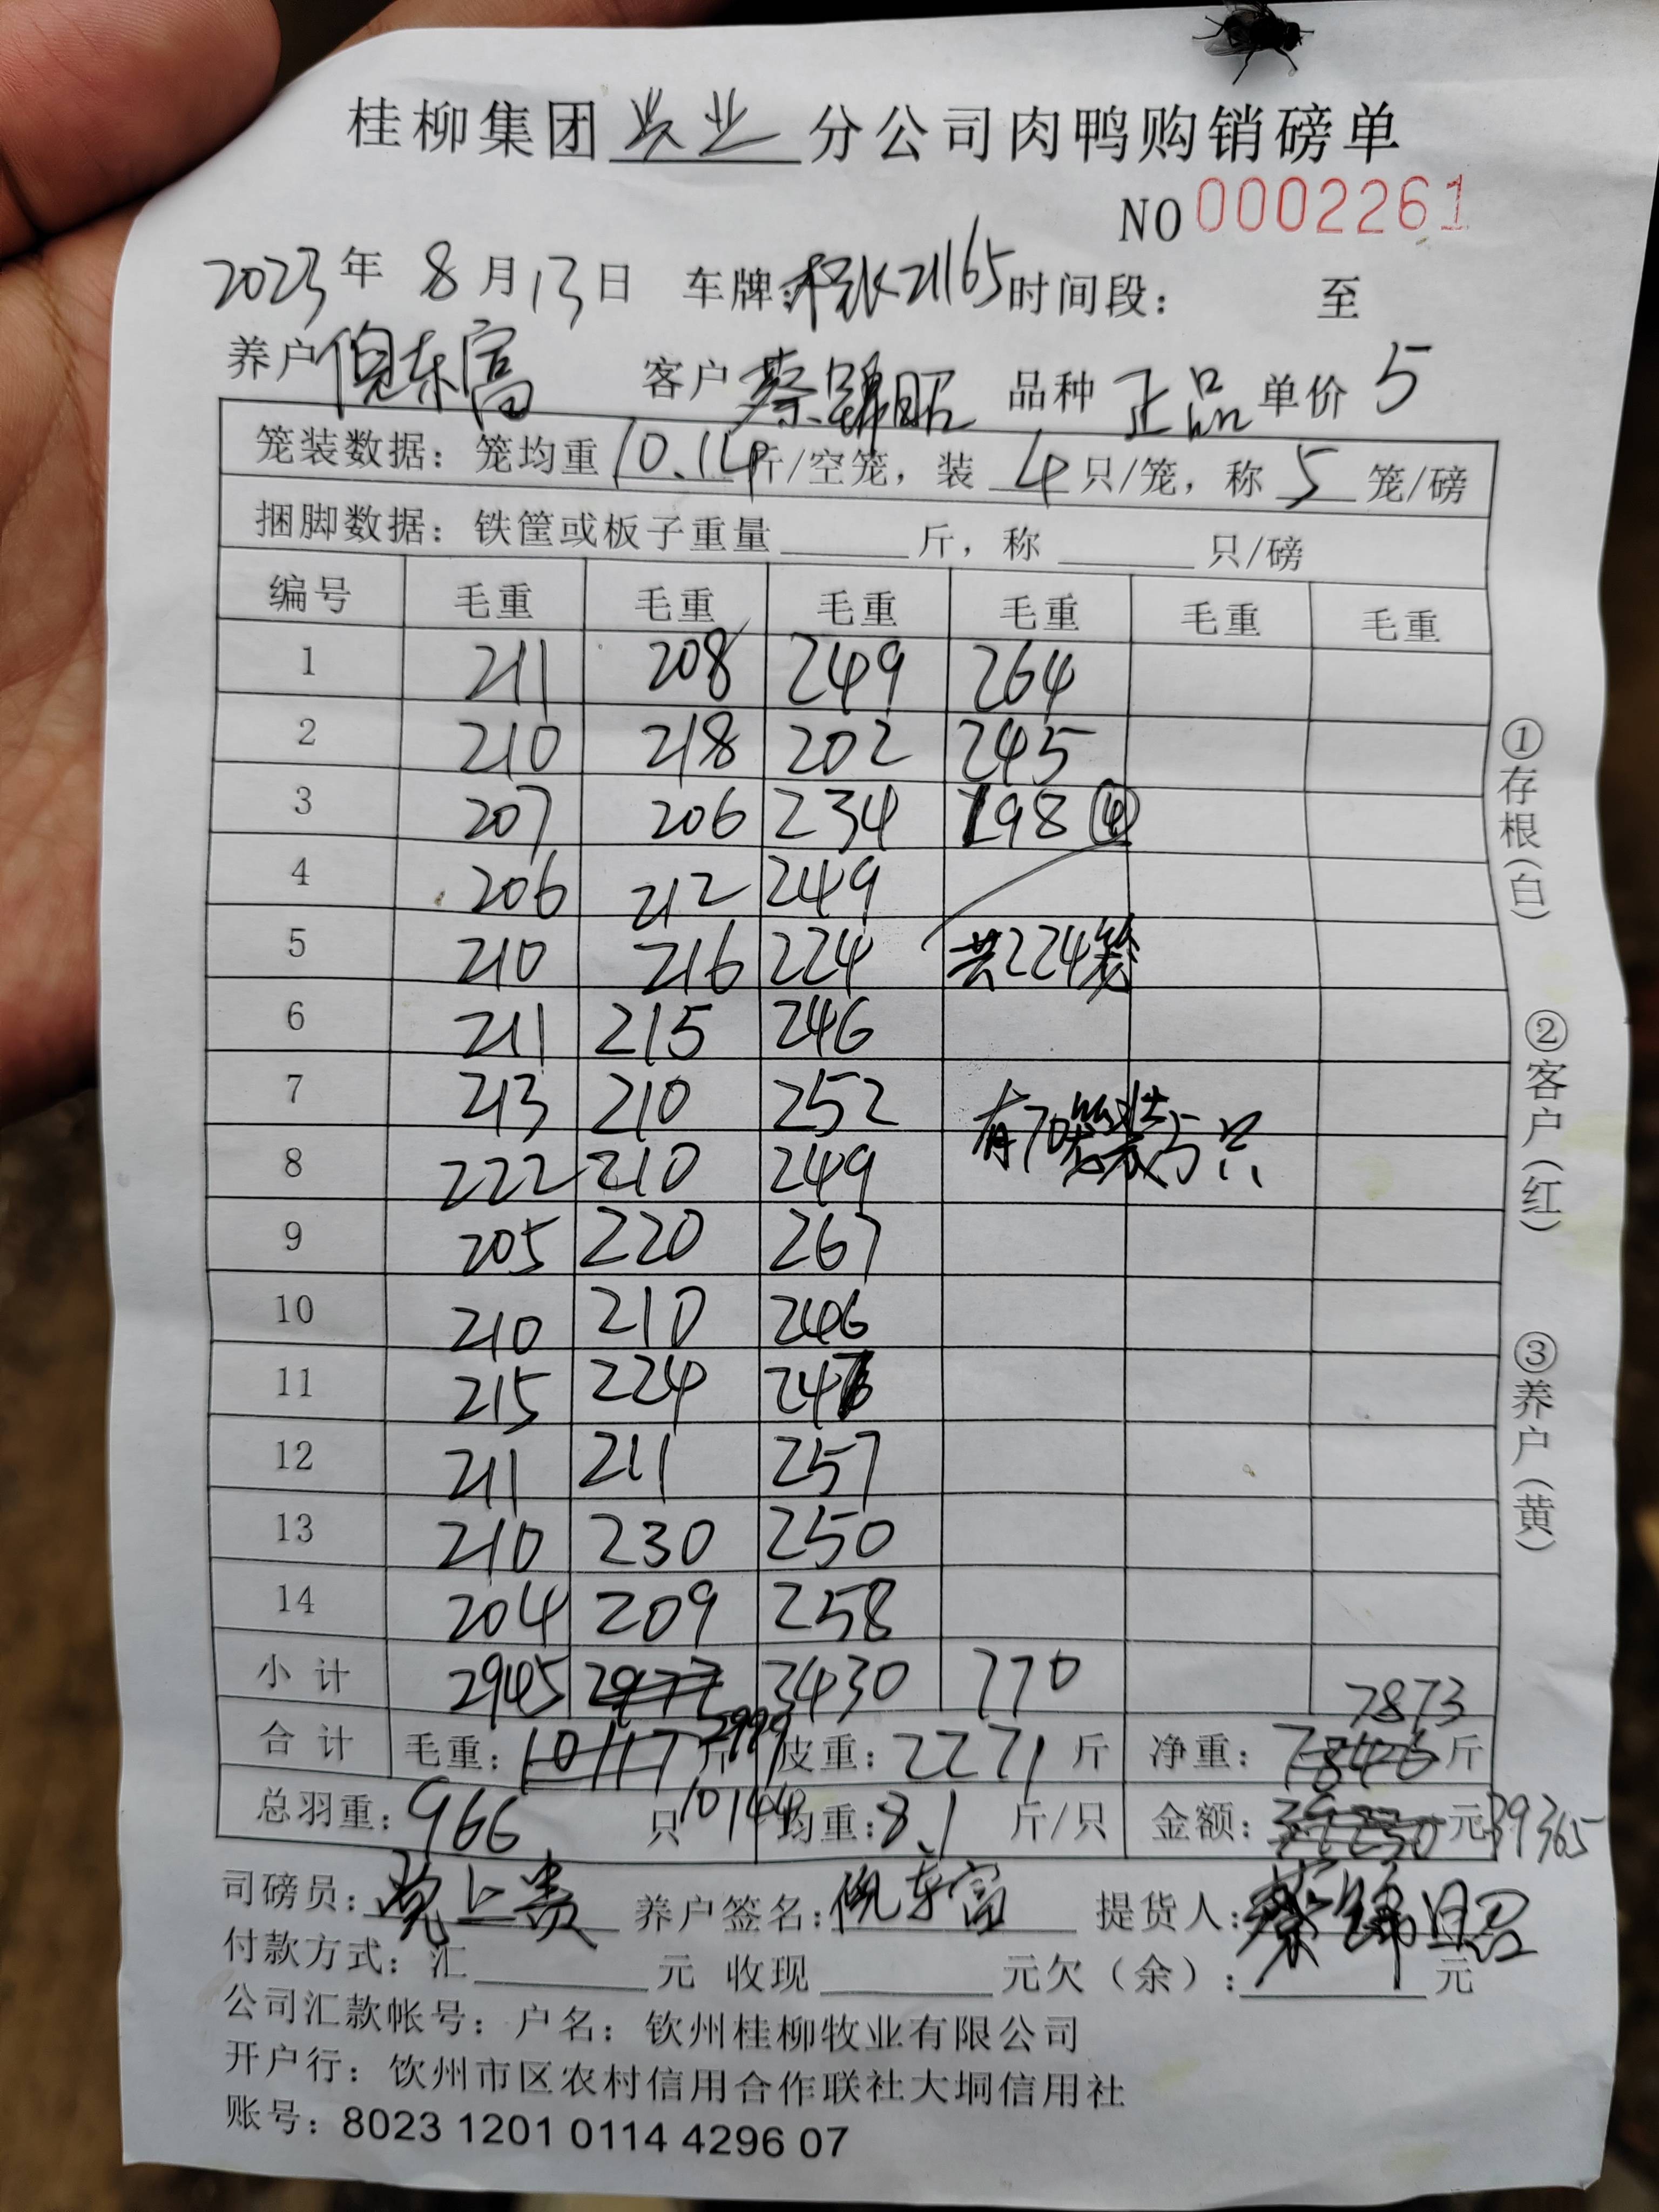 桂柳集团兴业分公司肉鸭购销磅单
NO 0002261
2023年 8月13日 车牌: 21165 时间段: 至
养户 倪东富 客户 蔡锦昭 品种 正品 单价 5
笼装数据: 笼均重10.14斤/空笼, 装 4 只/笼, 称 5 笼/磅
捆脚数据: 铁筐或板子重量 斤, 称 只/磅
编号 毛重 毛重 毛重 毛重 毛重 毛重
1 211 208 249 264
2 210 218 202 245
3 207 206 234 198 ④
4 206 212 249
5 210 216 224 共224笼
6 211 215 246
7 213 210 252 有70笼装5只
8 222 210 249
9 205 220 267
10 210 210 246
11 215 224 247
12 211 211 257
13 210 230 250
14 204 209 258
小计 2945 2977 3430 770 7873
合计 毛重: 10117 斤 2999 皮重: 2271 斤 净重: 7846 斤
总羽重: 966 只 10144 均重: 8.1 斤/只 金额: 39230 元 39365
司磅员: 上贵 养户签名: 倪东富 提货人: 蔡锦昭
付款方式: 汇 元 收现 元欠(余): 元
公司汇款帐号: 户名: 钦州桂柳牧业有限公司
开户行: 钦州市区农村信用合作联社大垌信用社
账号: 8023 1201 0114 4296 07
①存根(白)
②客户(红)
③养户(黄)